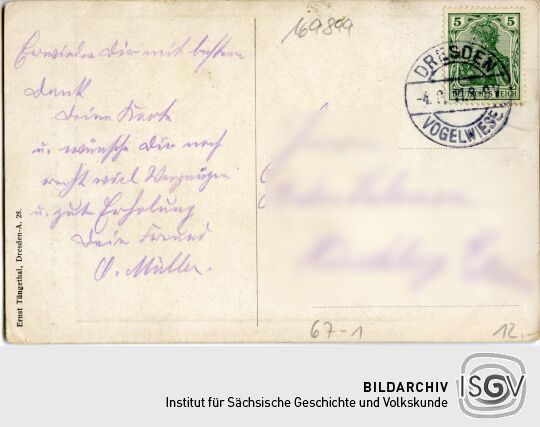 169899
5 5
DEUTSCHES REICH
DRESDEN
-4. 8.
VOGELWIESE
Erwiedre Dir mit bestem
Dank
Deine Karte
u. wünsche Dir noch
recht viel Vergnügen
u. gute Erholung
Dein Freund
O. Müller.
Ernst Tüngethal, Dresden-A. 28.
67-1
12,-
BILDARCHIV
Institut für Sächsische Geschichte und Volkskunde
ISGV